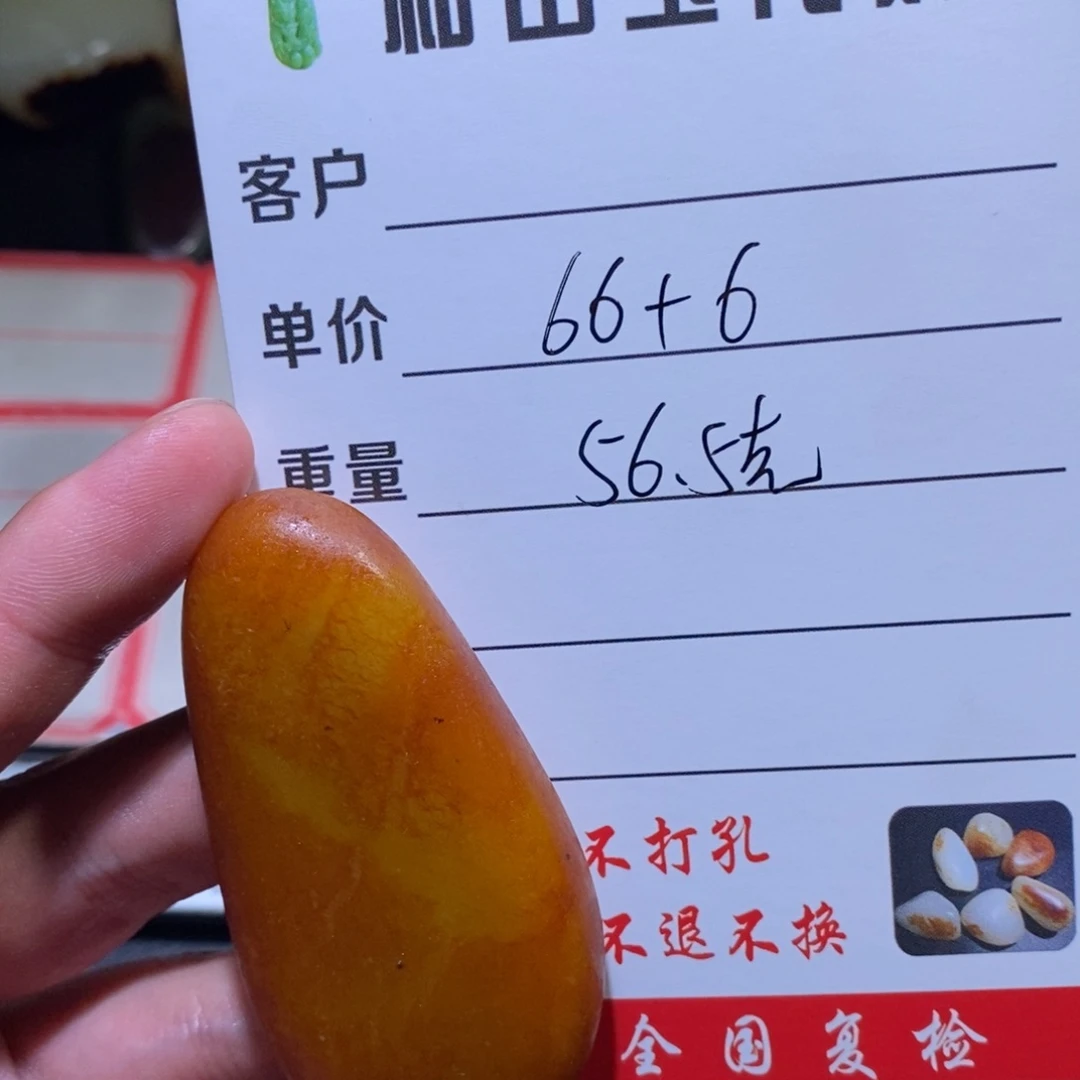 客户
单价 66+6
重量 56.5克
不打孔
不退不换
全国复检